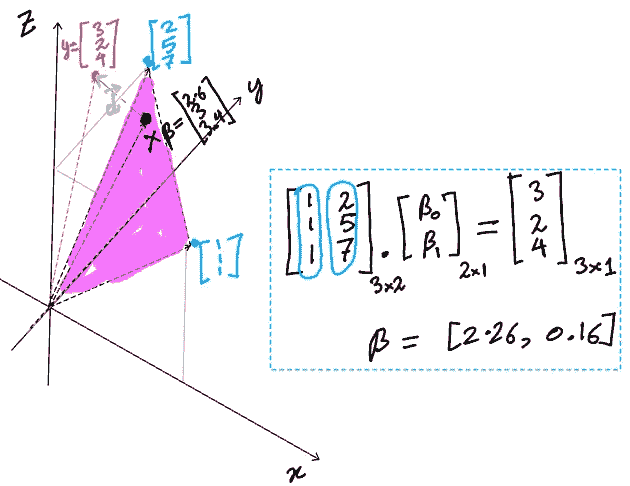 Z
y=[3 2 4]
[2 5 7]
y
Xβ=[2.6 3 3.4]
[1 1 1]
x
[1 2
1 5
1 7]3x2 . [β0 β1]2x1 = [3 2 4]3x1
β = [2.26, 0.16]